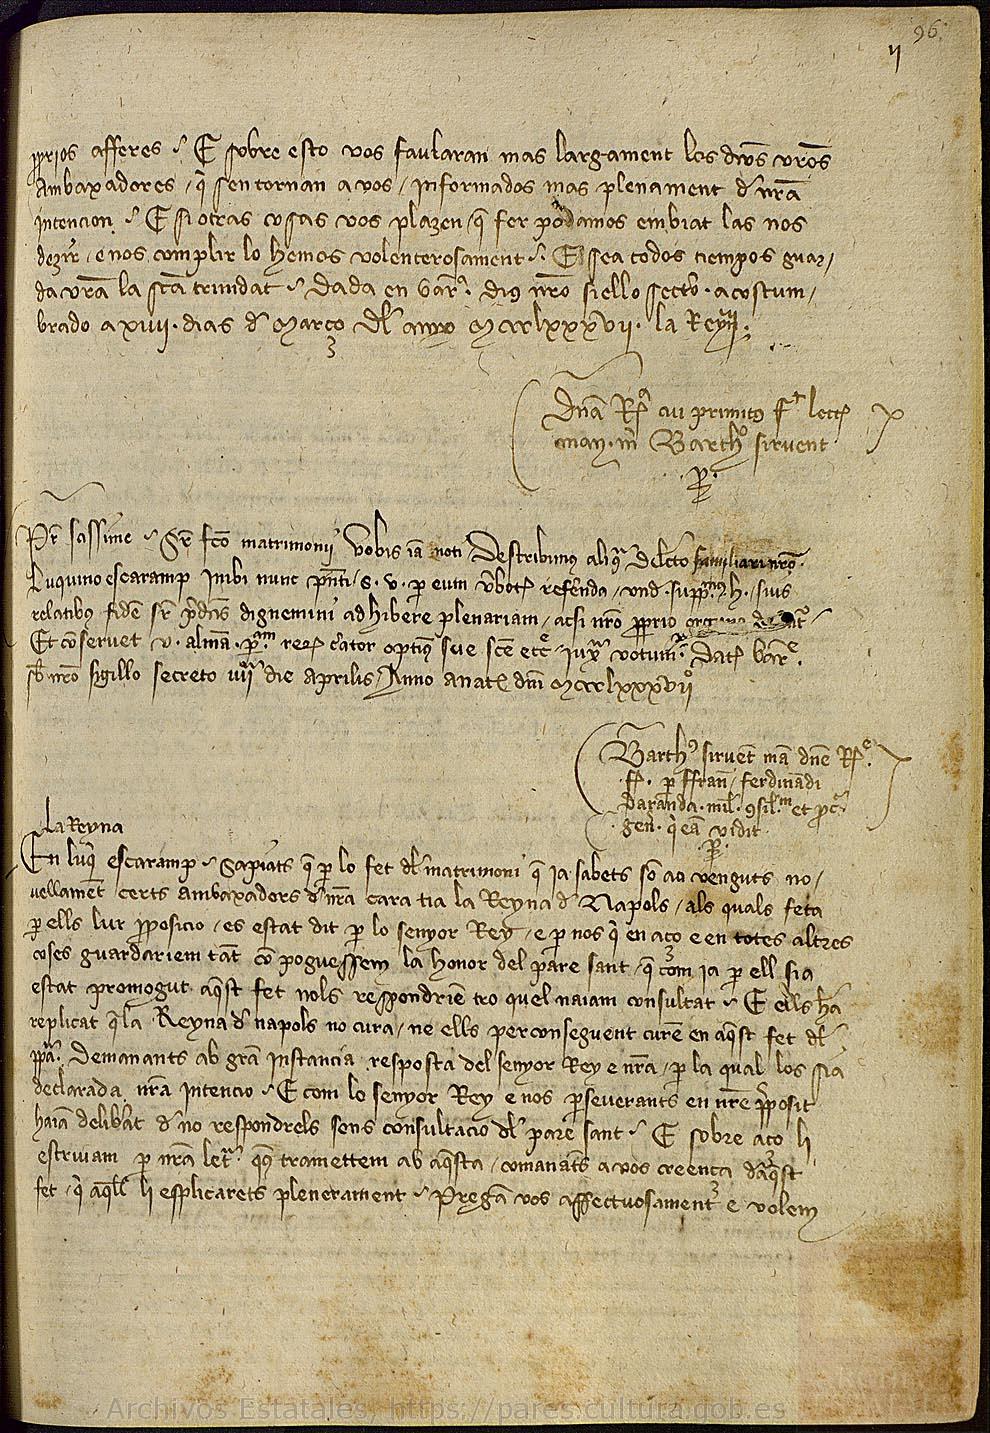 96
II
pprios afferes E sobre esto vos faularan mas largament los dios vros
Ambaxadores / q̄ sen tornan a vos / Informados mas plenament d nrā
Intencion E si otras cosas vos plazen / q̄ fer podamos embiat las nos
dezir / e nos complir lo hemos volenterosament E sea todos tiempos guar/
da vrā la scā trinidat Dada en Barᵃ dius nrō siello secreto acostum/
brado a xiiii dias d Março dl anyo Mccclxxxvii la Reyna
Dnā Rᵃ cui primitus fᵗ lecta
man m Bartho sirvent
p
Pr̄ scissime Sr̄ fco matrimonii Vobis iā noti Describimus aliqᵃ Delecto familiari nrō
Luquino escaramp Inibi nunc pn̄ti s. v. p eum vbot refendā / und supp h. / suis
relatibus fidē sr̄ p̄dcīs dignemini adhibere plenariam / acsi nrō pprio
Et coservet v. almā reꝝ cātor optimus sue scē ecce iuxᵃ votum Dat Barᵉ
sb nrō sigillo secreto iiii die aprilis Anno a nat dm̄ Mccclxxxvii°
Bartho sirvēt mā dnē Rᵉ
fc. p ffran ferdinādi
Daranda mil ꝯsil et pc
gen q̄ eā vidit
p
La Reyna
En luqī escaramp Sapiats q̄ p lo fet dl matrimoni q̄ ja sabets sō aci venguts no/
vellamēt certs ambaxadors d nrā cara tia la Reyna d Napols / als quals feta
p ells lur pposicio / es estat dit p lo senyor Rey / e p nos q̄ en aço e en totes altres
coses guardariem tāt cō poguessem la honor del pare sant / q̄ com ja p ell sia
estat promogut aq̄st fet nols respondriē tro quel naiam consultat E ells hā
replicat q̄ la Reyna d napols no cura / ne ells per conseguent curē en aq̄st fet dl
ppa Demanants ab gran Instancia resposta del senyor Rey e nrā / p la qual los sia
declarada nrā Intencio E com lo senyor Rey e nos pseverants en nrē pposit
haiā delibāt d no respondrels sens consultacio dl pare sant E sobre aço li
escrivam p nrā letrᵃ qus tramettem ab aq̄sta / comanāts a vos creença daq̄st
fet / q̄ aq̄ll li esplicarets plenerament Pregā vos affectuosament e volem
Archivos Estatales, https://pares.cultura.gob.es